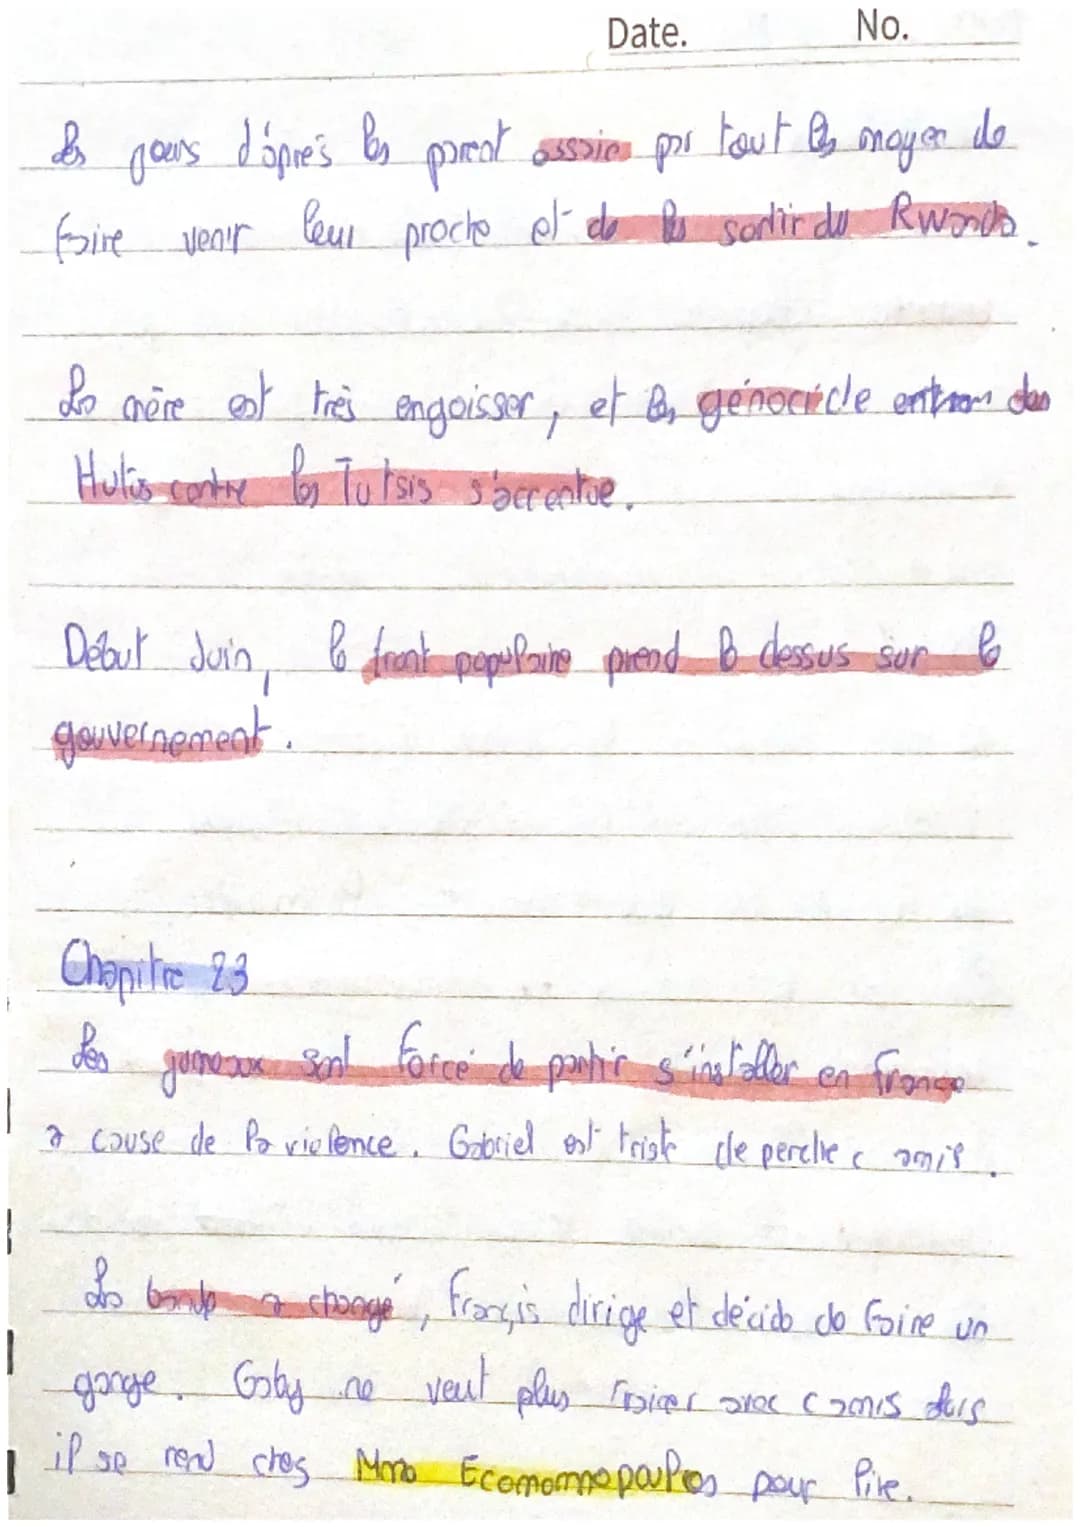 Date. No.
Les jours d'après les parent essaie par tout les moyen de
faire venir leur proche et de les sortir du Rwanda.
La mère est très engoisser, et le génocide des
Hutus contre les Tutsis s'accentue.
Début Juin, le front populaire prend le dessus sur le
gouvernement.
Chapitre 23
Les jumeaux sont forcé de partir s'installer en france
a cause de la violence. Gabriel est triste de perdre c amis.
La bande a changé, françis dirige et décide de faire un
gange. Gaby ne veut plus avec c amis
il se rend ches Mme Ecomomopoulos pour lire.